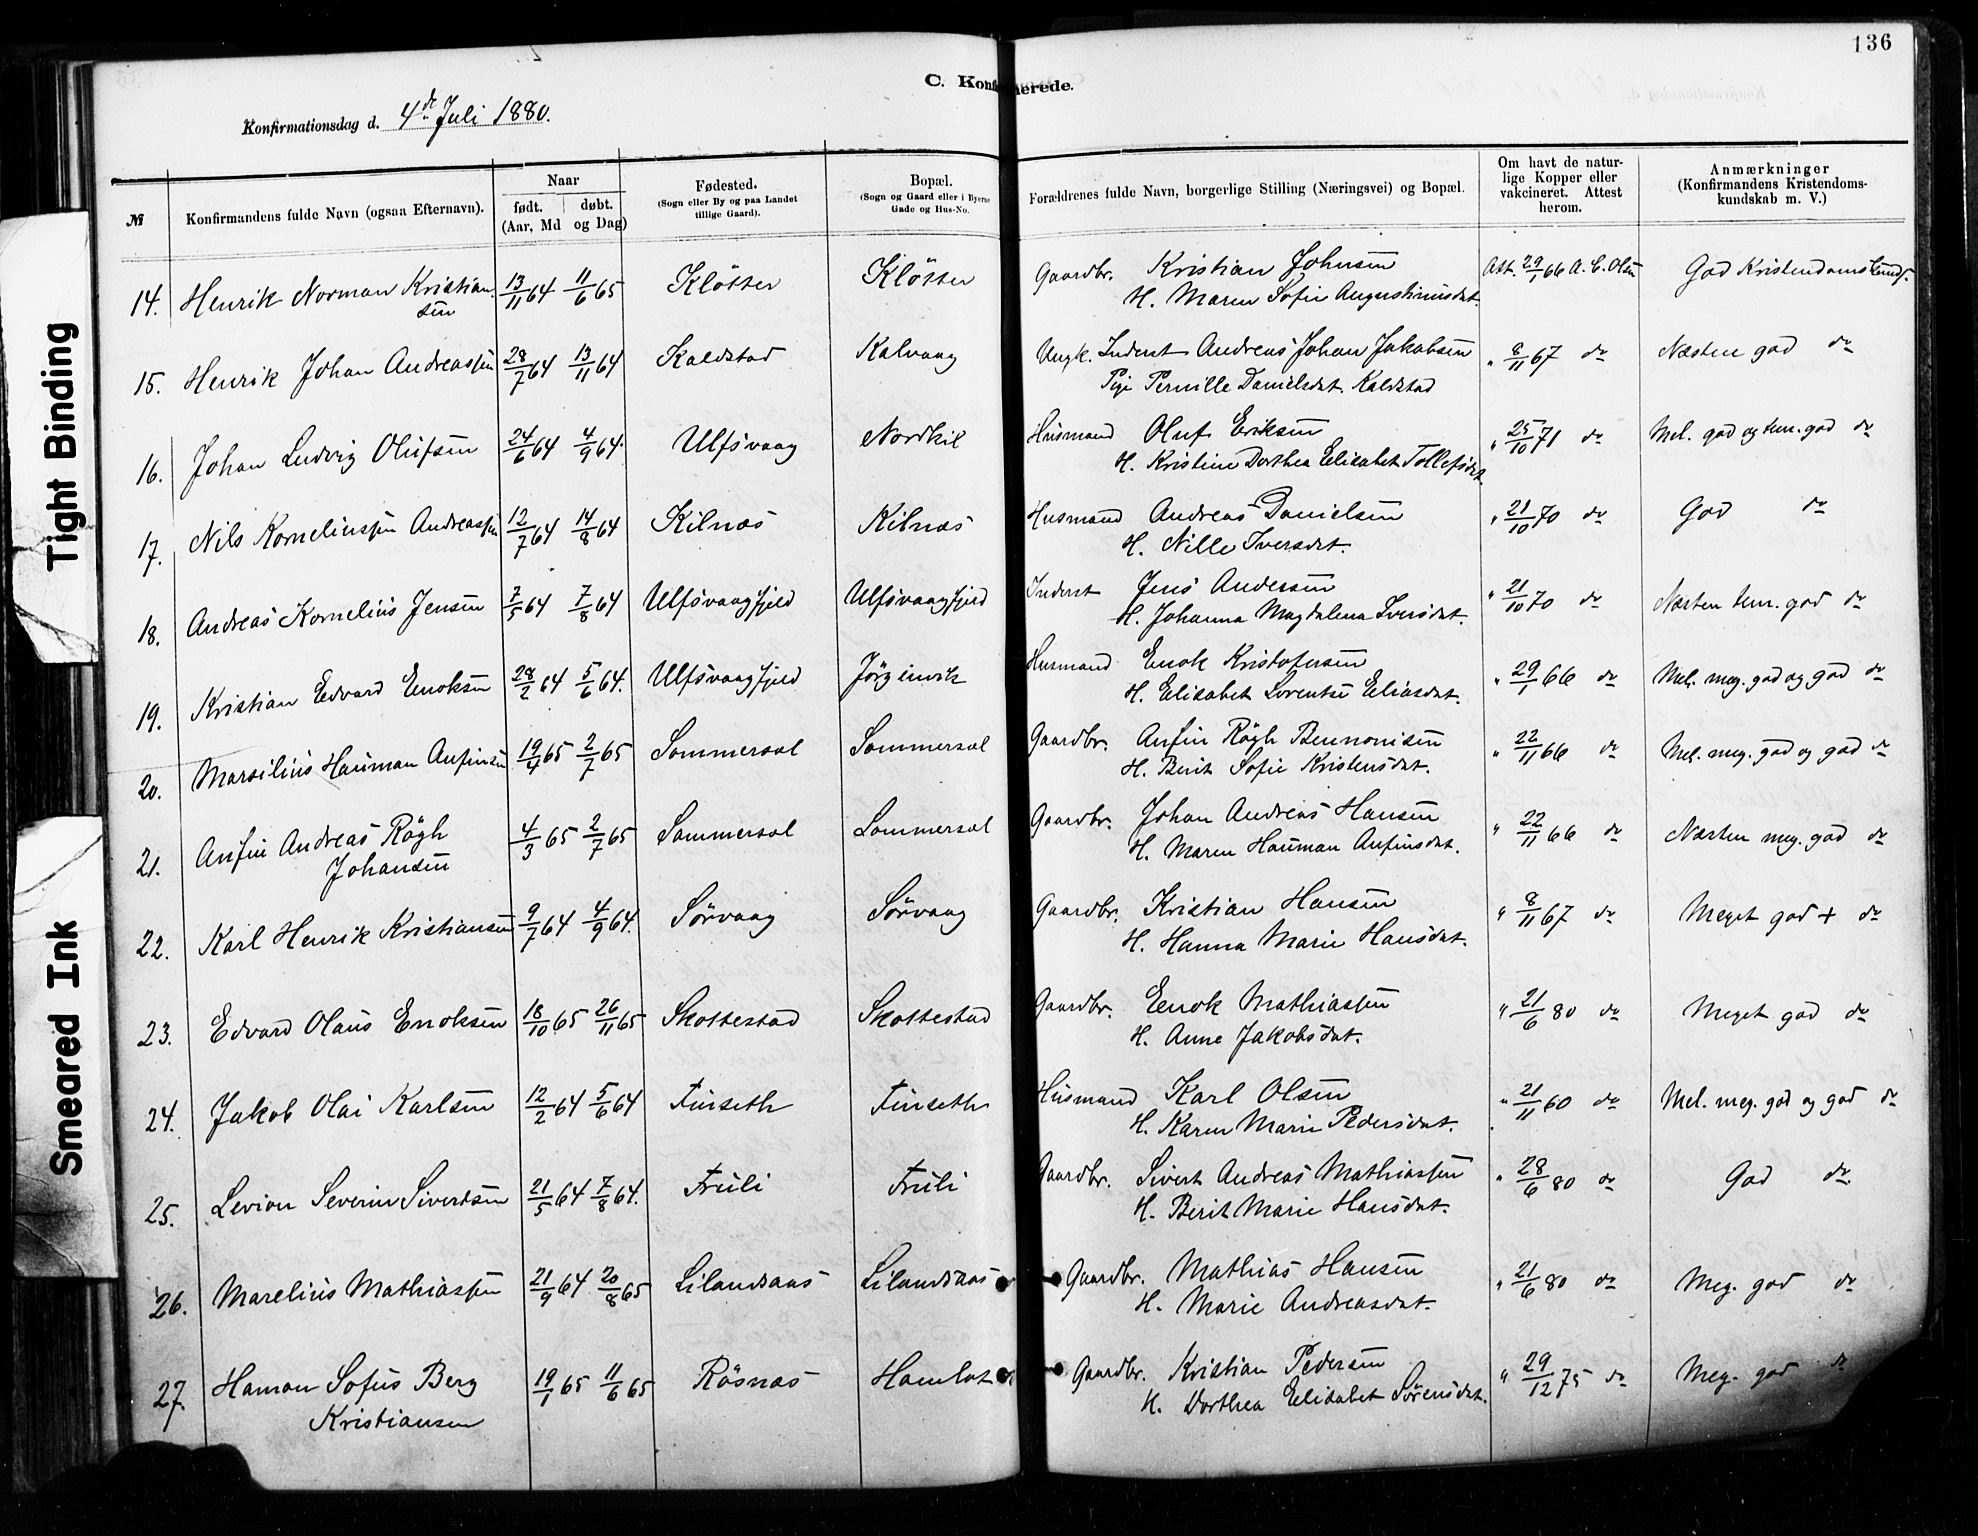 136
C. Konfirmerede.
Konfirmationsdag d. 4de Juli 1880.
№ Konfirmandens fulde Navn (ogsaa Efternavn). Naar født. døbt. (Aar, Md og Dag) Fødested. (Sogn eller By og paa Landet tillige Gaard). Bopæl. (Sogn og Gaard eller i Byerne Gade og Hus-No. Forældrenes fulde Navn, borgerlige Stilling (Næringsvei) og Bopæl. Om havt de naturlige Kopper eller vakcineret. Attest herom. Anmærkninger (Konfirmandens Kristendomskundskab m. V.)
14. Henrik Norman Kristian 13/11 64 11/6 65 Kløtter Kløtter Gaardbr. Kristian Johnsen Att. 29/1 66 A. C. Olsen God Kristendomskundsk.
sen H. Maren Sofie Augustinusdat.
15. Henrik Johan Andreassen 28/7 64 13/11 64 Kaldstad Kalvaag Ungk. Inderst Andreas Johan Jakobsen " 8/11 67 do Næsten god do
Pige Pernille Danielsdat. Kaldstad
16. Johan Ludvig Olufsen 24/6 64 4/9 64. Ulfsvaag Nordkil Husmand Oluf Eriksen " 25/10 71 do Mel. god og tem. god do
H. Kristine Dorthea Elisabet Tollefsdat.
17. Nils Korneliussen Andreassen 12/7 64 14/8 64 Kilnæs Kilnæs Husmand Andreas Danielsen " 21/10 70 do God do
H. Nille Iversdat.
18. Andreas Kornelius Jensen 7/5 64 7/8 64 Ulfsvaagfjeld Ulfsvaagfjeld Inderst Jens Andersen " 21/10 70 do Næsten tem. god do
H. Johanna Magdalena Iversdat.
19. Kristian Edvard Enoksen 28/2 64 5/6 64. Ulfsvaagfjeld Jørgenvik Husmand Enok Kristofersen " 29/1 66 do Mel. meg. god og god do
H. Elisabet Lorentse Eliasdat.
20. Marsilius Hauman Anfinsen 19/4 65 2/7 65 Sommersæl Sommersæl Gaardbr. Anfin Røgh Bennonisen " 22/11 66 do Mel. meg. god og god do
H. Berit Sofie Kristensdat.
21. Anfin Andreas Røgh 4/3 65 2/7 65 Sommersæl Sommersæl Gaardbr. Johan Andreas Hansen " 22/11 66 do Næsten meg. god do
Johansen H. Maren Hauman Anfinsdat.
22. Karl Henrik Kristiansen 9/7 64 4/9 64. Sørvaag Sørvaag Gaardbr. Kristian Hansen " 8/11 67 do Meget god + do
H. Hanna Marie Hansdat.
23. Edvard Olaus Enoksen 18/10 65 26/11 65 Skottestad Skottestad Gaardbr. Enok Mathiassen " 21/6 80 do Meget god do
H. Anne Jakobsdat.
24. Jakob Olai Karlsen 12/2 64 5/6 64 Finseth Finseth Husmand Karl Olsen " 21/11 60 do Mel. meg. god og god do
H. Karen Marie Pedersdat.
25. Levion Severin Sivertsen 21/5 64 7/8 64. Fruli Fruli Gaardbr. Sivert Andreas Mathiassen " 28/6 80 do God do.
H. Berit Marie Hansdat.
26. Marelius Mathiassen 21/9 64 20/8 65 Lilandsaas Lilandsaas Gaardbr. Mathias Hansen " 21/6 80 do Meg. god do
H. Marie Andreasdat.
27. Haman Sofus Berg 19/1 65 11/6 65 Røsnæs Hamlot Gaardbr. Kristian Pedersen " 29/12 75 do Meg. god do
Kristiansen H. Dorthea Elisabet Sørensdat.
Tight Binding
Smeared Ink